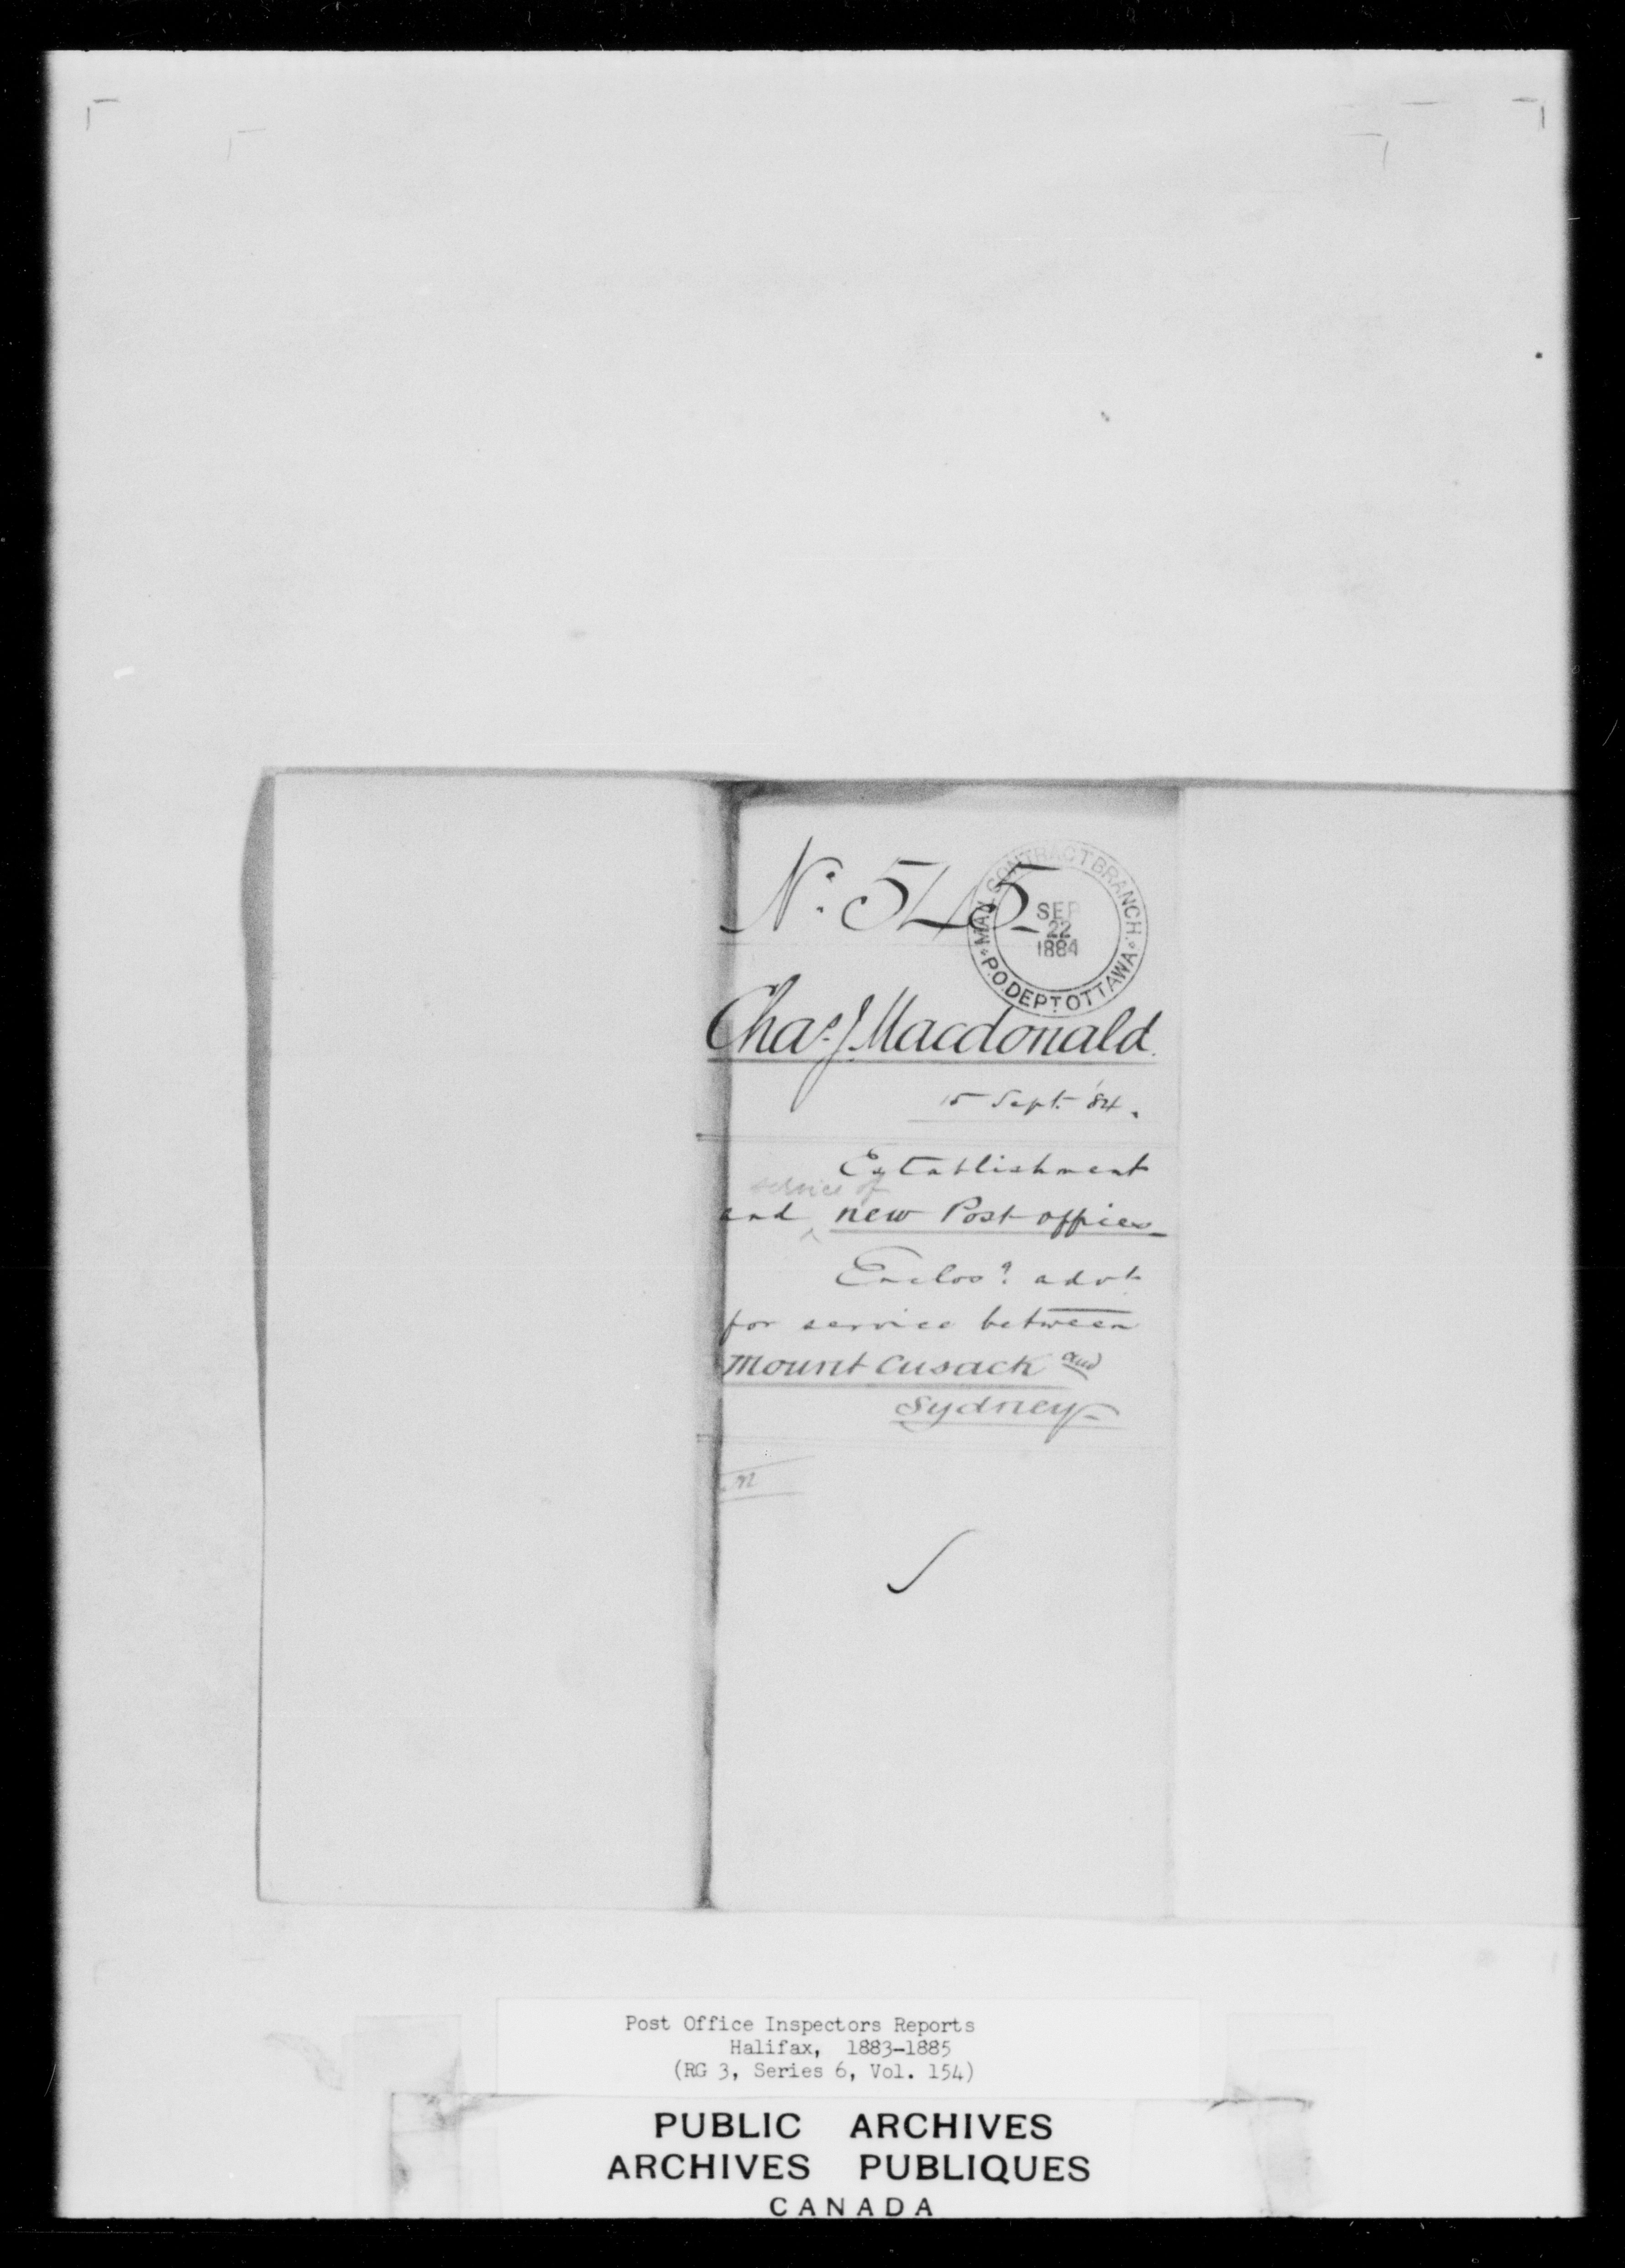 No. 545
MAIL CONTRACT BRANCH.
SEP
22
1884
P.O. DEPT OTTAWA
Chas. J. Macdonald.
15 Sept. '84.
Establishment
service of
and new Post offices
Enclos.g advt.
for service between
Mount Cusack and
Sydney
Post Office Inspectors Reports
Halifax, 1883-1885
(RG 3, Series 6, Vol. 154)
PUBLIC ARCHIVES
ARCHIVES PUBLIQUES
CANADA